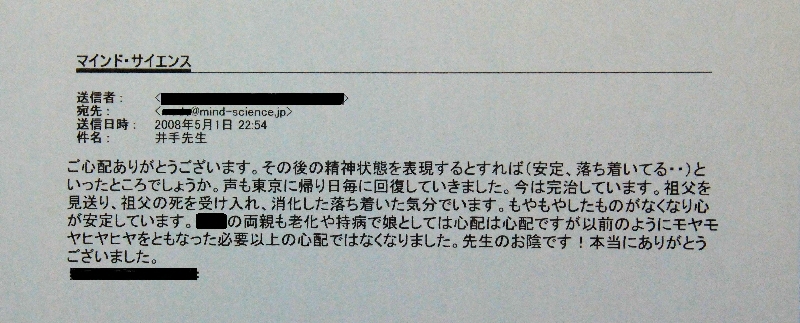 マインド・サイエンス
送信者： < >
宛先： < @mind-science.jp>
送信日時： 2008年5月1日 22:54
件名： 井手先生
ご心配ありがとうございます。その後の精神状態を表現するとすれば（安定、落ち着いてる・・）と
いったところでしょうか。声も東京に帰り日毎に回復していきました。今は完治しています。祖父を
見送り、祖父の死を受け入れ、消化した落ち着いた気分でいます。もやもやしたものがなくなり心
が安定しています。 の両親も老化や持病で娘としては心配は心配ですが以前のようにモヤモ
ヤヒヤヒヤをともなった必要以上の心配ではなくなりました。先生のお陰です！本当にありがとう
ございました。